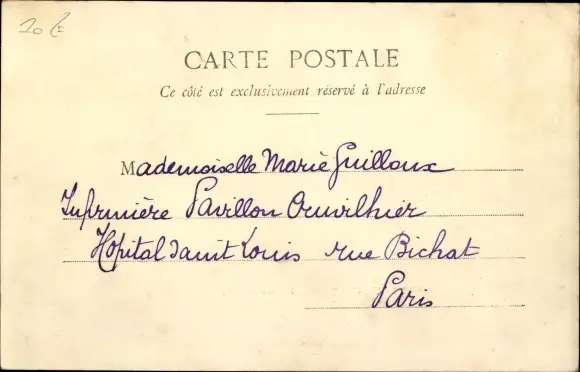 20 €
CARTE POSTALE
Ce côté est exclusivement réservé à l'adresse
Mademoiselle Marie Guilloux
Infirmière Pavillon Cruvilhier
Hopital Saint Louis rue Bichat
Paris